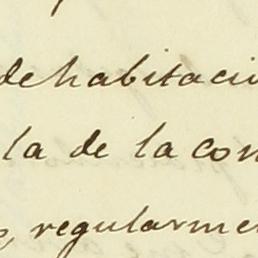 de habitació
la de la con
, regularmen